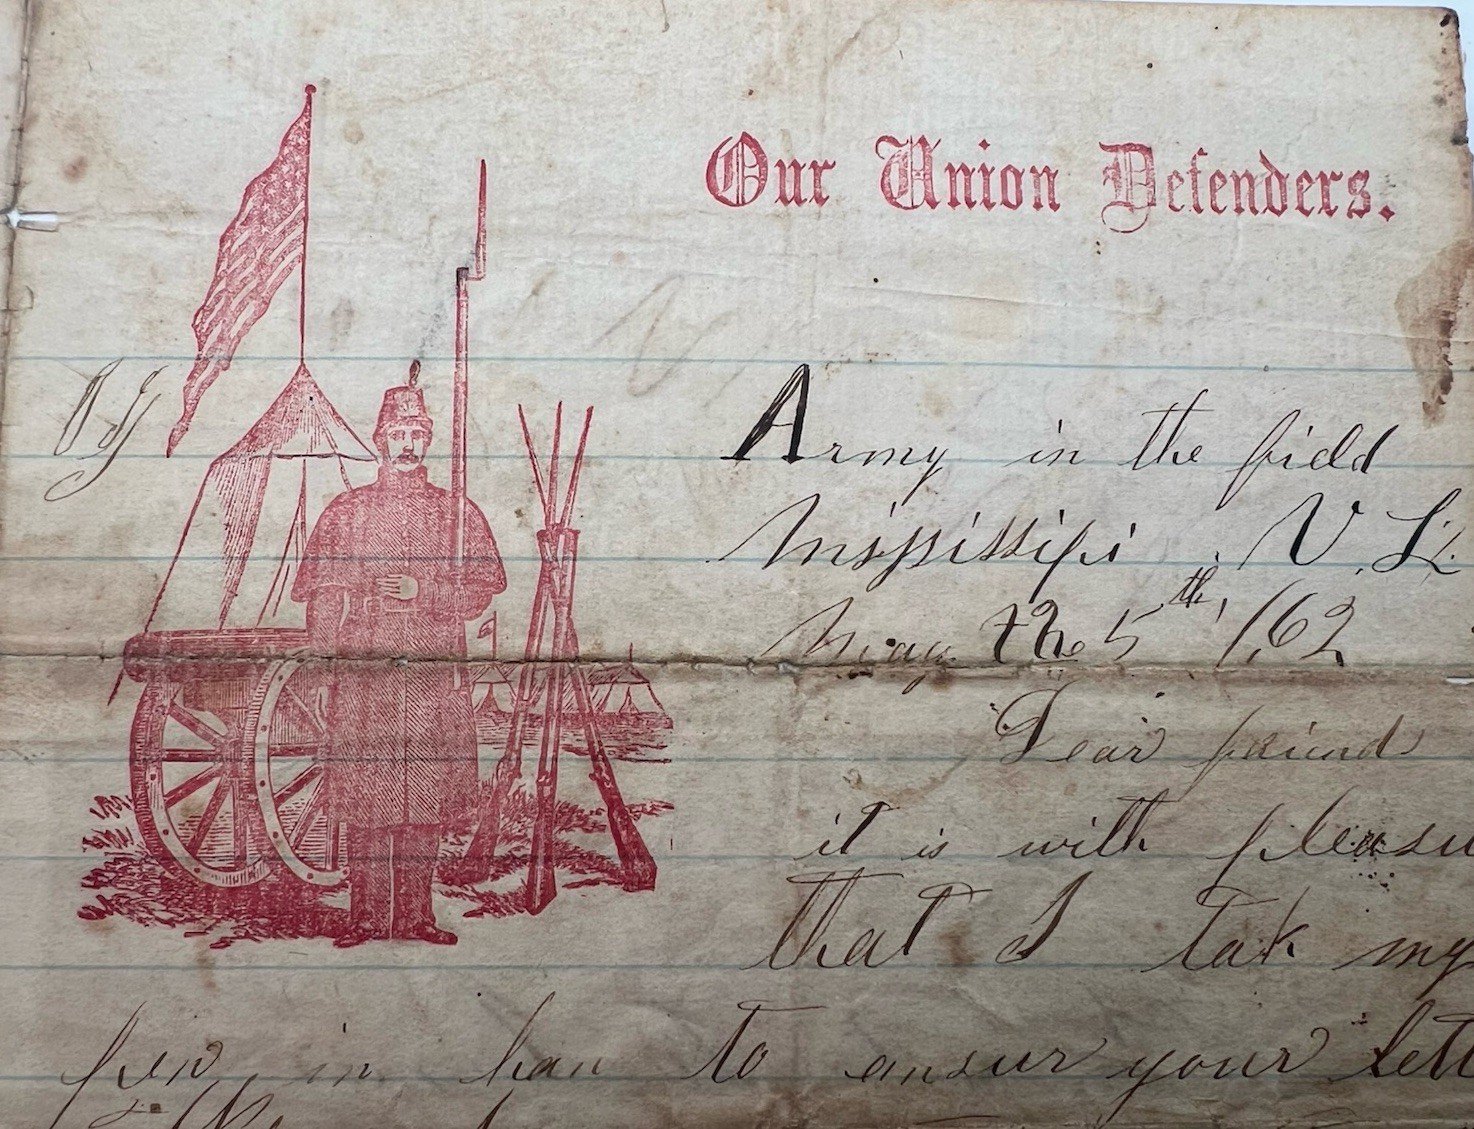 Our Union Defenders.
Army in the field
Mississippi . V. St.
May the 5th, /62
Dear friend
it is with pleasu
that I tak my
pen in han to ansur your lett